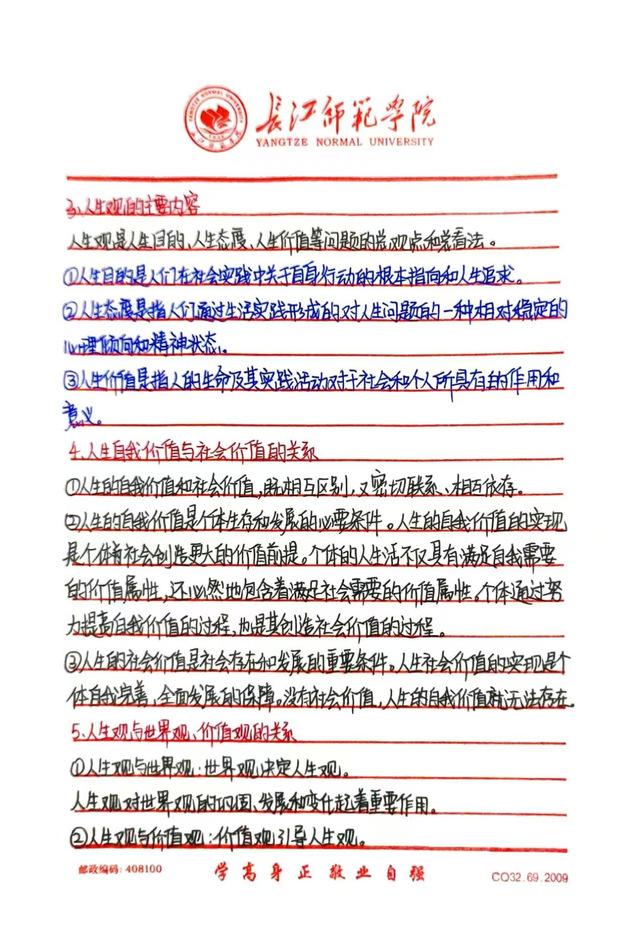 YANGTZE NORMAL UNIVERSITY
长江师范学院
长江师范学院
YANGTZE NORMAL UNIVERSITY
3、人生观的主要内容
人生观是人生目的、人生态度、人生价值等问题的总观点和总看法。
①人生目的是人们在社会实践中关于自身行动的根本指向和人生追求。
②人生态度是指人们通过生活实践形成的对人生问题的一种相对稳定的
心理倾向和精神状态。
③人生价值是指人的生命及其实践活动对于社会和个人所具有的作用和
意义。
4、人生自我价值与社会价值的关系
①人生的自我价值和社会价值,既相互区别,又密切联系、相互依存。
②人生的自我价值是个体生存和发展的必要条件。人生的自我价值的实现
是个体为社会创造更大的价值前提。个体的人生活不仅具有满足自我需要
的价值属性,还必然地包含着满足社会需要的价值属性。个体通过努
力提高自我价值的过程,也是其创造社会价值的过程。
③人生的社会价值是社会存在和发展的重要条件。人生社会价值的实现是个
体自我完善,全面发展的保障。没有社会价值,人生的自我价值就无法存在。
5、人生观与世界观、价值观的关系
①人生观与世界观:世界观决定人生观。
人生观对世界观的巩固、发展和变化起着重要作用。
②人生观与价值观:价值观引导人生观。
邮政编码: 408100
学高身正敬业自强
CQ32.69.2009